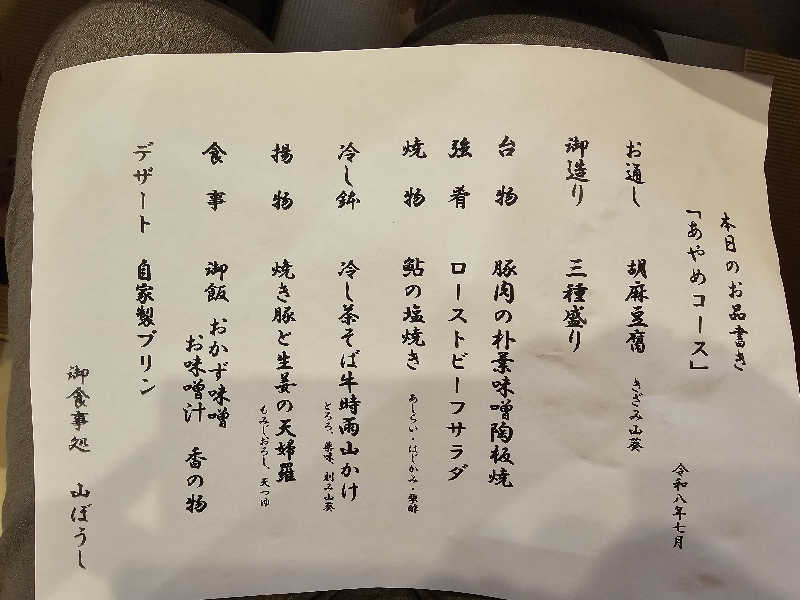 本日のお品書き
「あやめコース」
令和八年七月
お通し 胡麻豆腐 きざみ山葵
御造り 三種盛り
台物 豚肉の朴葉味噌陶板焼
強肴 ローストビーフサラダ
焼物 鮎の塩焼き あしらい・はじかみ・蓼酢
冷し鉢 冷し茶そば牛時雨山かけ
とろろ、薬味、刻み山葵
揚物 焼き豚と生姜の天婦羅
もみじおろし、天つゆ
食事 御飯 おかず味噌
お味噌汁 香の物
デザート 自家製プリン
御食事処 山ぼうし